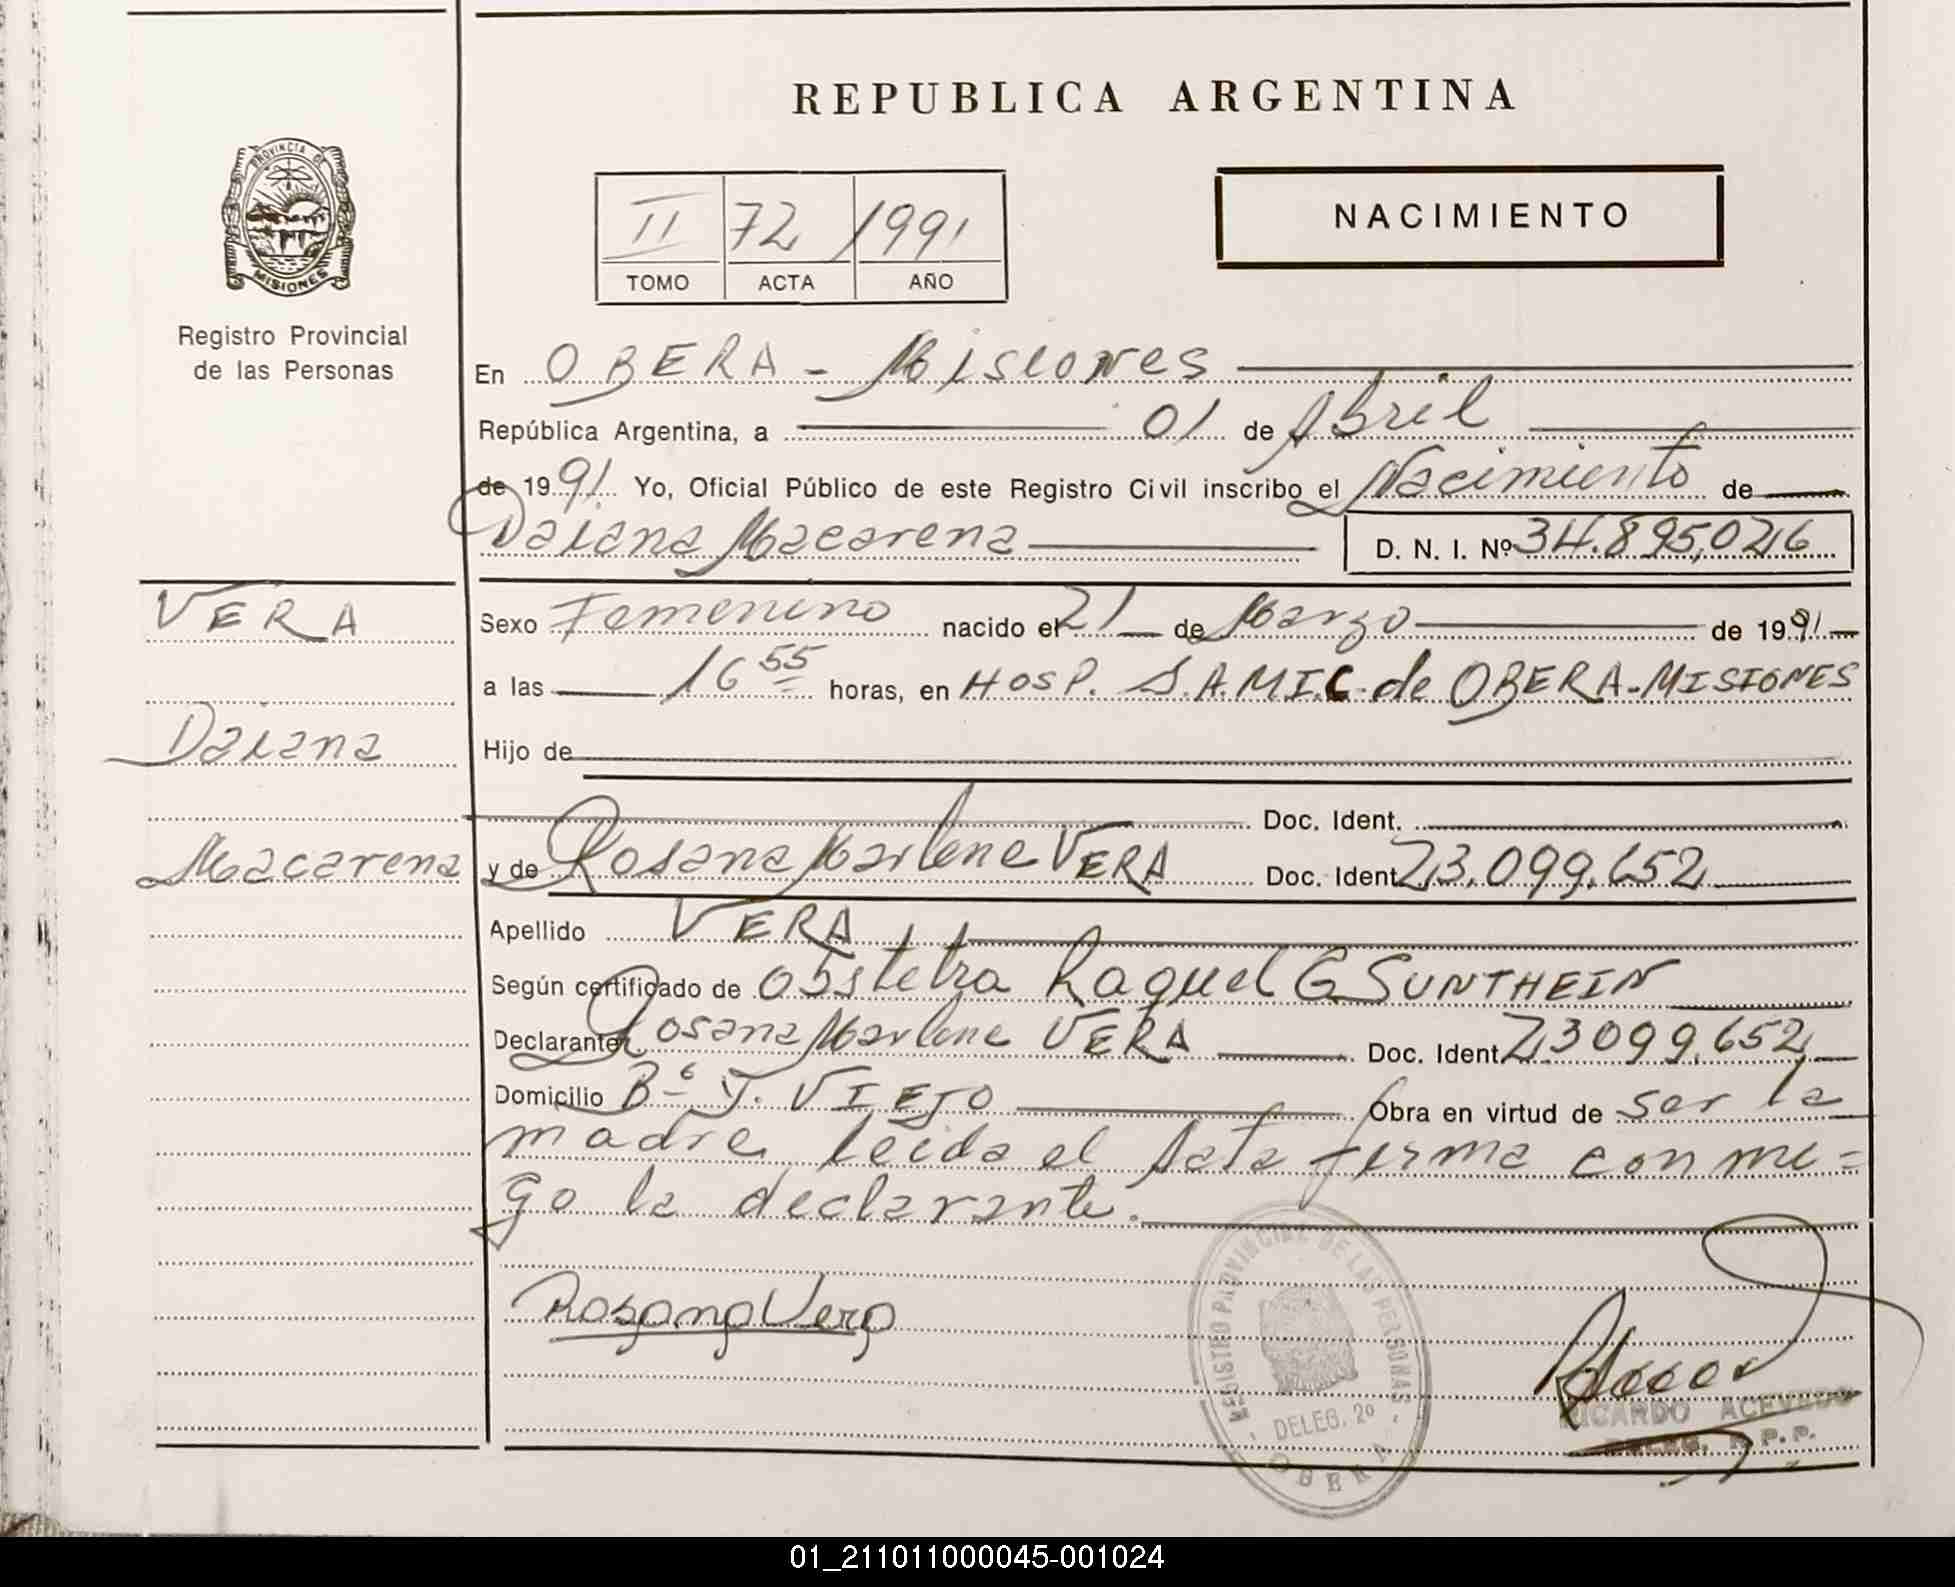 REPUBLICA ARGENTINA
PROVINCIA DE
MISIONES
Registro Provincial
de las Personas
II 72 1991
TOMO ACTA AÑO
NACIMIENTO
En OBERA - Misiones
República Argentina, a 01 de Abril
de 1991 Yo, Oficial Público de este Registro Civil inscribo el Nacimiento de
Daiana Macarena D. N. I. Nº 34.895,026
VERA
Daiana
Macarena
Sexo Femenino nacido el 21 de Marzo de 1991
a las 16 55 horas, en HOSP. S.A.M.I.C. de OBERA-MISIONES
Hijo de
Doc. Ident.
y de Rosana Marlene VERA Doc. Ident. 23.099.652
Apellido VERA
Según certificado de Obstetra Raquel G SUNTHEIN
Declarante Rosana Marlene VERA Doc. Ident. 23099.652
Domicilio Bº J. VIEJO Obra en virtud de ser la
madre leida el Acta firma conmi-
go la declarante.
Rosana Vera
REGISTRO PROVINCIAL DE LAS PERSONAS
DELEG. 2º
OBERA
RICARDO ACEVEDO
DELEG. R.P.P.
01_211011000045-001024